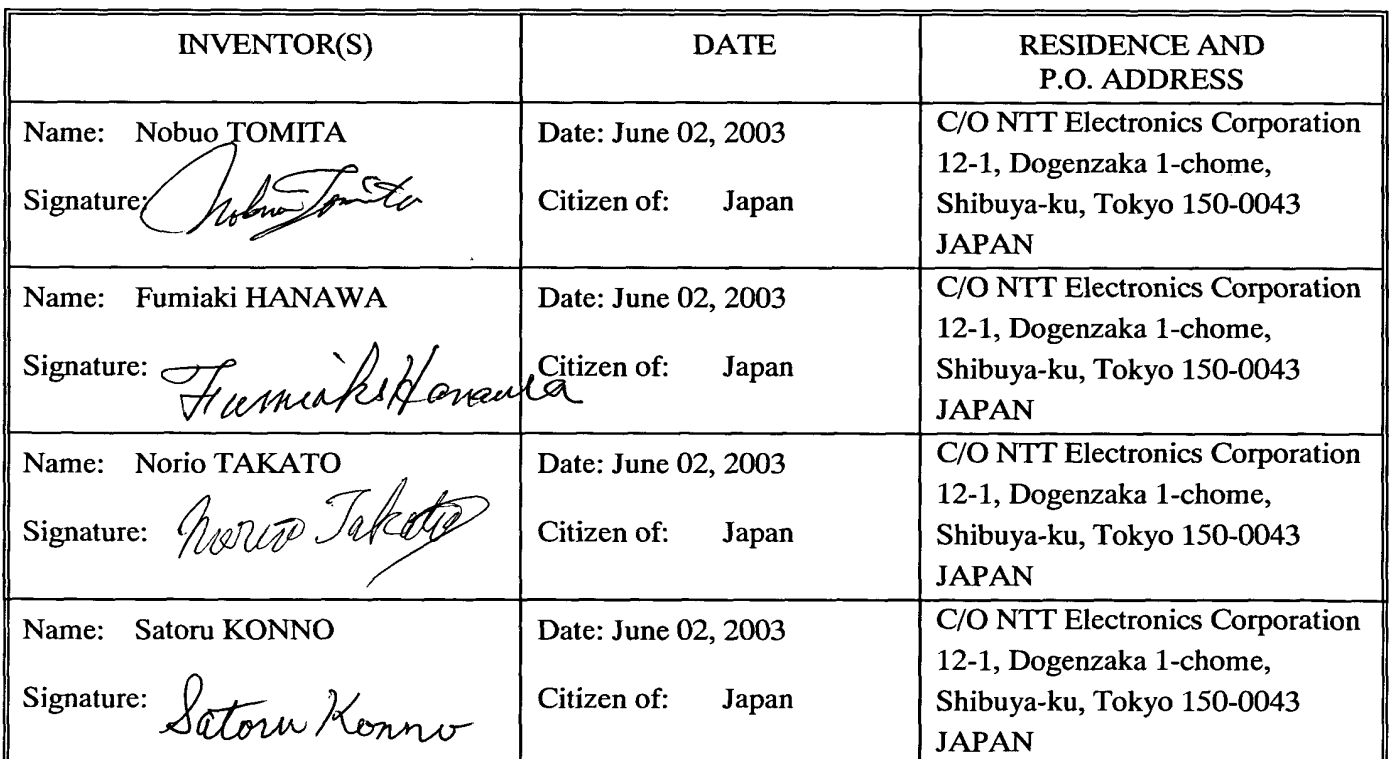 INVENTOR(S)
DATE
RESIDENCE AND
P.O. ADDRESS
Name: Nobuo TOMITA
Signature: Nobuo Tomita
Date: June 02, 2003
Citizen of: Japan
C/O NTT Electronics Corporation
12-1, Dogenzaka 1-chome,
Shibuya-ku, Tokyo 150-0043
JAPAN
Name: Fumiaki HANAWA
Signature: Fumiaki Hanawa
Date: June 02, 2003
Citizen of: Japan
C/O NTT Electronics Corporation
12-1, Dogenzaka 1-chome,
Shibuya-ku, Tokyo 150-0043
JAPAN
Name: Norio TAKATO
Signature: Norio Takato
Date: June 02, 2003
Citizen of: Japan
C/O NTT Electronics Corporation
12-1, Dogenzaka 1-chome,
Shibuya-ku, Tokyo 150-0043
JAPAN
Name: Satoru KONNO
Signature: Satoru Konno
Date: June 02, 2003
Citizen of: Japan
C/O NTT Electronics Corporation
12-1, Dogenzaka 1-chome,
Shibuya-ku, Tokyo 150-0043
JAPAN